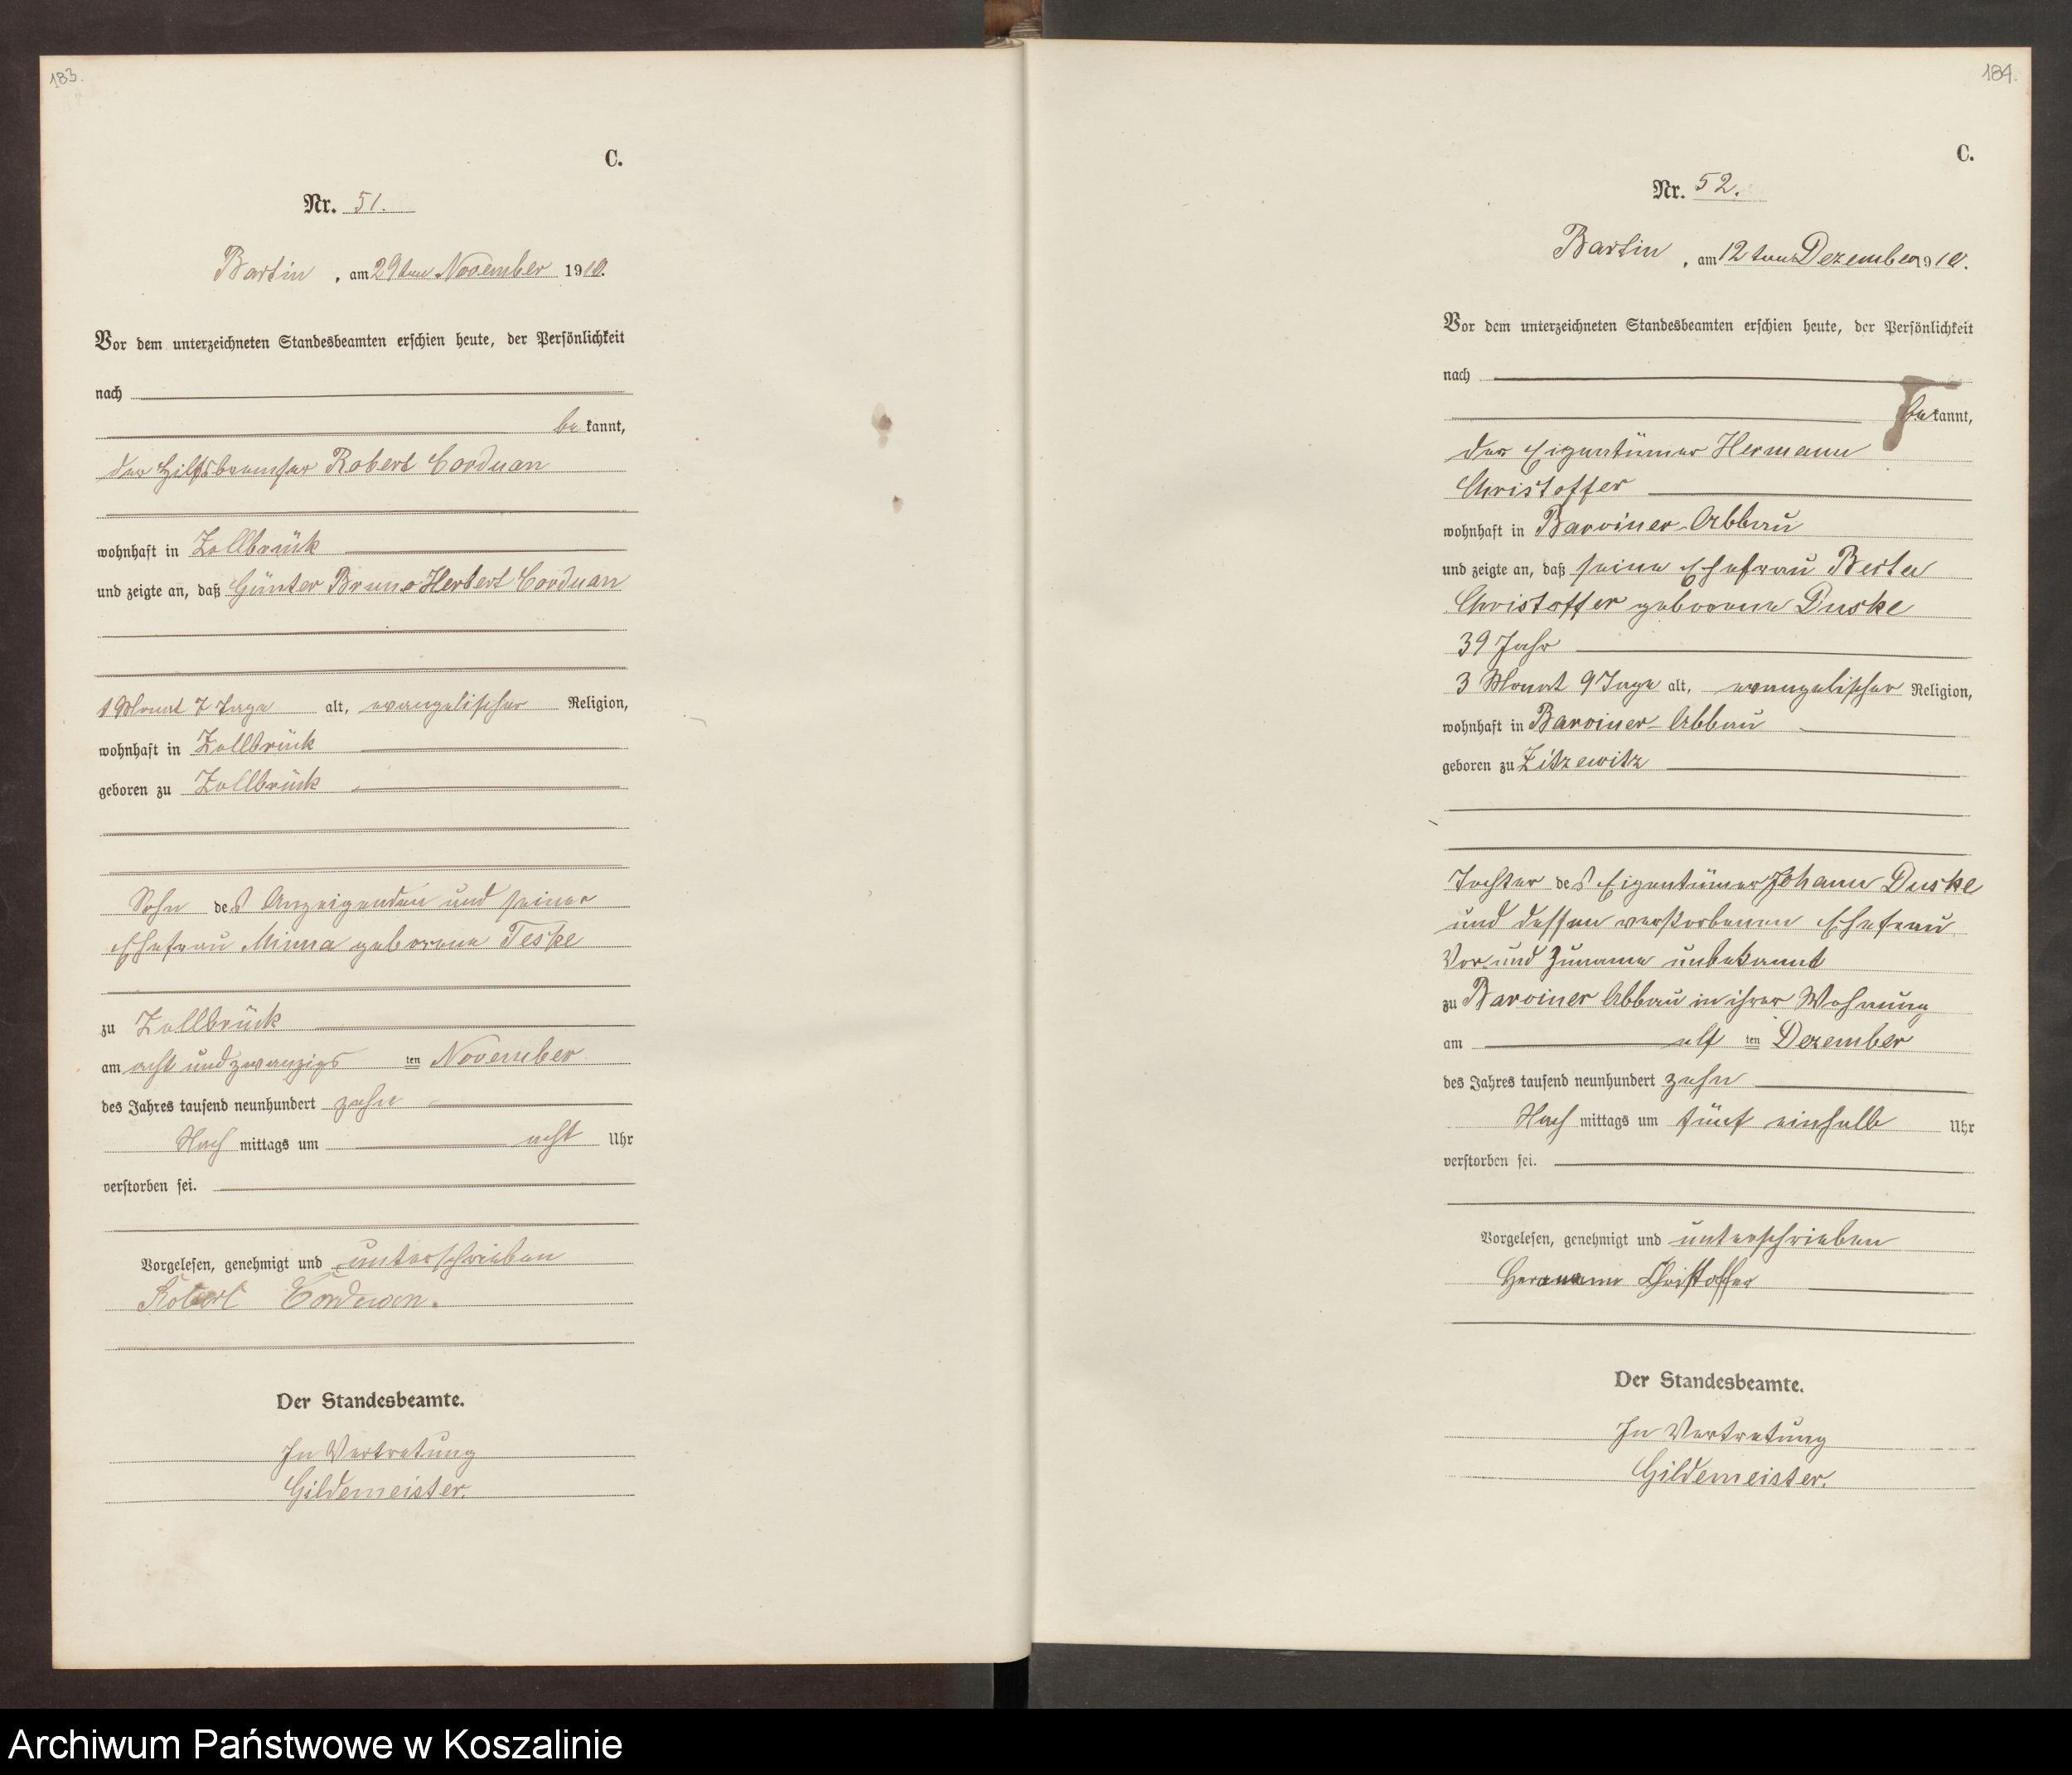 183.
C.
Nr. 51.
Bartin, am 29ten November 1910.
Vor dem unterzeichneten Standesbeamten erschien heute, der Persönlichkeit
nach
be kannt,
der Hilfsbremser Robert Corduan
wohnhaft in Zollbrück
und zeigte an, daß Günter Bruno Herbert Corduan
1 Monat 7 Tage alt, evangelischer Religion,
wohnhaft in Zollbrück
geboren zu Zollbrück
Sohn des Anzeigenden und seiner
Ehefrau Minna geborene Teske
zu Zollbrück
am acht und zwanzigs ten November
des Jahres tausend neunhundert zehn
Nach mittags um acht Uhr
verstorben sei.
Vorgelesen, genehmigt und unterschrieben
Robert Corduan.
Der Standesbeamte.
In Vertretung
Gildemeister.
184.
C.
Nr. 52.
Bartin, am 12ten Dezember 1910.
Vor dem unterzeichneten Standesbeamten erschien heute, der Persönlichkeit
nach
be kannt,
der Eigentümer Hermann
Christoffer
wohnhaft in Barviner-Abbau
und zeigte an, daß seine Ehefrau Berta
Christoffer geborene Duske
39 Jahr
3 Monat 9 Tage alt, evangelischer Religion,
wohnhaft in Barviner-Abbau
geboren zu Zitzewitz
Tochter des Eigentümer Johann Duske
und dessen verstorbenen Ehefrau
Vor- und Zuname unbekannt
zu Barviner Abbau in ihrer Wohnung
am elf ten Dezember
des Jahres tausend neunhundert zehn
Nach mittags um fünf einhalb Uhr
verstorben sei.
Vorgelesen, genehmigt und unterschrieben
Hermann Christoffer
Der Standesbeamte.
In Vertretung
Gildemeister.
Archiwum Państwowe w Koszalinie